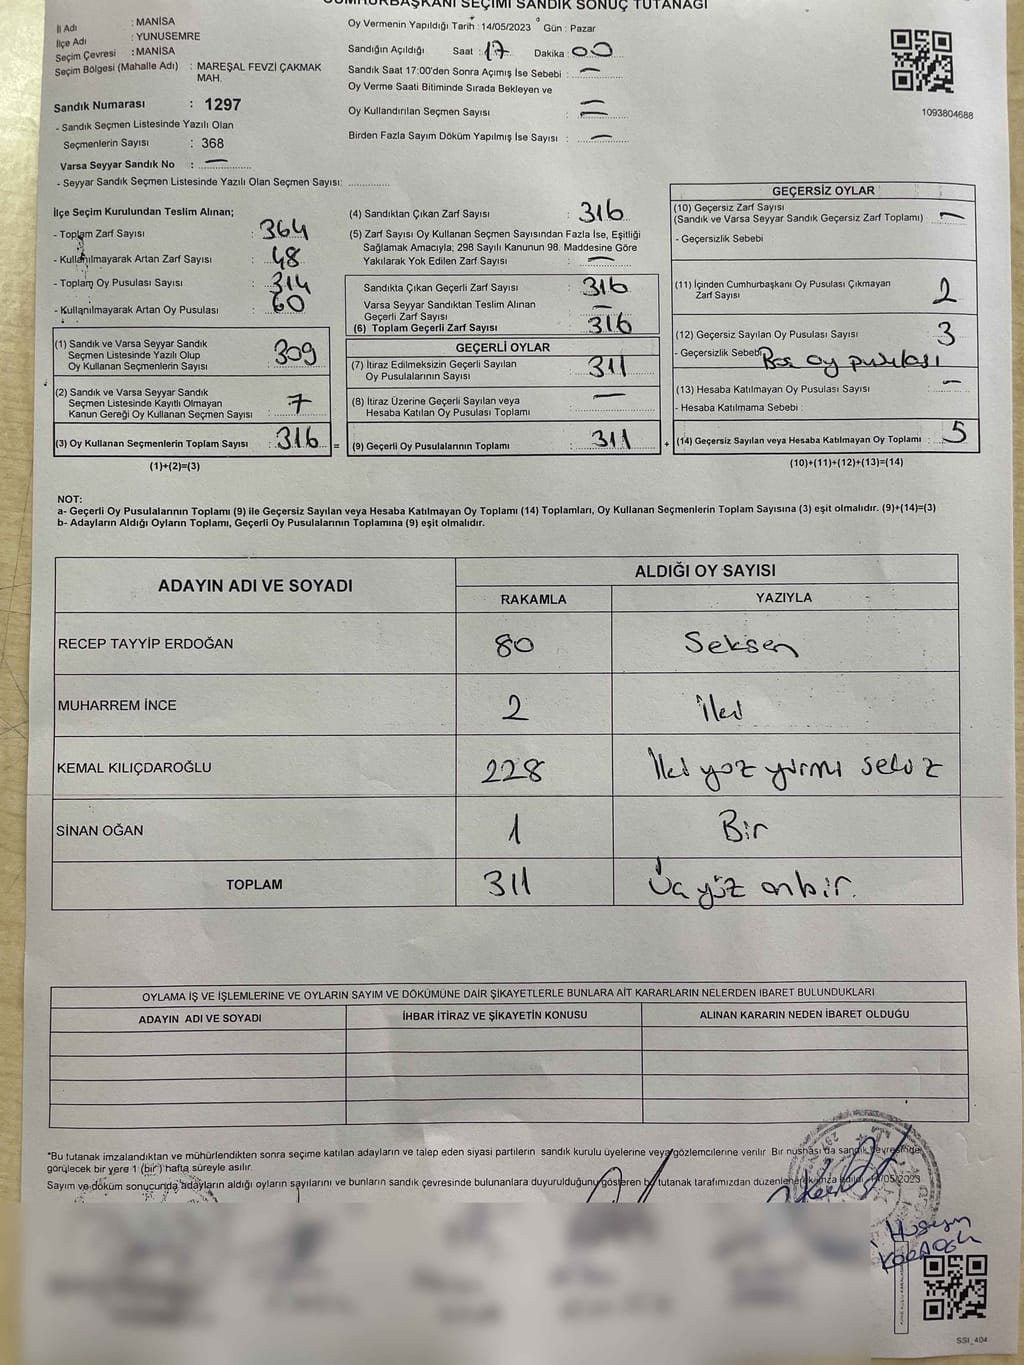 CUMHURBAŞKANI SEÇİMİ SANDIK SONUÇ TUTANAĞI
İl Adı : MANİSA
İlçe Adı : YUNUSEMRE
Seçim Çevresi : MANİSA
Seçim Bölgesi (Mahalle Adı) : MAREŞAL FEVZİ ÇAKMAK MAH.
Sandık Numarası : 1297
- Sandık Seçmen Listesinde Yazılı Olan
Seçmenlerin Sayısı : 368
Varsa Seyyar Sandık No : —
- Seyyar Sandık Seçmen Listesinde Yazılı Olan Seçmen Sayısı: ..............
Oy Vermenin Yapıldığı Tarih : 14/05/2023 Gün : Pazar
Sandığın Açıldığı Saat : 17 Dakika : 00
Sandık Saat 17:00'den Sonra Açımış İse Sebebi : —
Oy Verme Saati Bitiminde Sırada Bekleyen ve
Oy Kullandırılan Seçmen Sayısı : =
Birden Fazla Sayım Döküm Yapılmış İse Sayısı : —
1093804688
İlçe Seçim Kurulundan Teslim Alınan;
- Toplam Zarf Sayısı : 364
- Kullanılmayarak Artan Zarf Sayısı : 48
- Toplam Oy Pusulası Sayısı : 314
- Kullanılmayarak Artan Oy Pusulası : 60
(1) Sandık ve Varsa Seyyar Sandık
Seçmen Listesinde Yazılı Olup
Oy Kullanan Seçmenlerin Sayısı : 309
(2) Sandık ve Varsa Seyyar Sandık
Seçmen Listesinde Kayıtlı Olmayan
Kanun Gereği Oy Kullanan Seçmen Sayısı : 7
(3) Oy Kullanan Seçmenlerin Toplam Sayısı : 316 =
(1)+(2)=(3)
(4) Sandıktan Çıkan Zarf Sayısı : 316
(5) Zarf Sayısı Oy Kullanan Seçmen Sayısından Fazla İse, Eşitliği
Sağlamak Amacıyla; 298 Sayılı Kanunun 98. Maddesine Göre
Yakılarak Yok Edilen Zarf Sayısı : —
Sandıkta Çıkan Geçerli Zarf Sayısı : 316
Varsa Seyyar Sandıktan Teslim Alınan
Geçerli Zarf Sayısı : —
(6) Toplam Geçerli Zarf Sayısı : 316
GEÇERLİ OYLAR
(7) İtiraz Edilmeksizin Geçerli Sayılan
Oy Pusulalarının Sayısı : 311
(8) İtiraz Üzerine Geçerli Sayılan veya
Hesaba Katılan Oy Pusulası Toplamı : —
(9) Geçerli Oy Pusulalarının Toplamı : 311 +
GEÇERSİZ OYLAR
(10) Geçersiz Zarf Sayısı
(Sandık ve Varsa Seyyar Sandık Geçersiz Zarf Toplamı) : —
- Geçersizlik Sebebi
(11) İçinden Cumhurbaşkanı Oy Pusulası Çıkmayan
Zarf Sayısı : 2
(12) Geçersiz Sayılan Oy Pusulası Sayısı : 3
- Geçersizlik Sebebi Boş oy pusulası
(13) Hesaba Katılmayan Oy Pusulası Sayısı : —
- Hesaba Katılmama Sebebi :
(14) Geçersiz Sayılan veya Hesaba Katılmayan Oy Toplamı : 5
(10)+(11)+(12)+(13)=(14)
NOT:
a- Geçerli Oy Pusulalarının Toplamı (9) ile Geçersiz Sayılan veya Hesaba Katılmayan Oy Toplamı (14) Toplamları, Oy Kullanan Seçmenlerin Toplam Sayısına (3) eşit olmalıdır. (9)+(14)=(3)
b- Adayların Aldığı Oyların Toplamı, Geçerli Oy Pusulalarının Toplamına (9) eşit olmalıdır.
ADAYIN ADI VE SOYADI ALDIĞI OY SAYISI
RAKAMLA YAZIYLA
RECEP TAYYİP ERDOĞAN 80 Seksen
MUHARREM İNCE 2 İki
KEMAL KILIÇDAROĞLU 228 İki yüz yirmi sekiz
SİNAN OĞAN 1 Bir
TOPLAM 311 Üç yüz onbir.
OYLAMA İŞ VE İŞLEMLERİNE VE OYLARIN SAYIM VE DÖKÜMÜNE DAİR ŞİKAYETLERLE BUNLARA AİT KARARLARIN NELERDEN İBARET BULUNDUKLARI
ADAYIN ADI VE SOYADI İHBAR İTİRAZ VE ŞİKAYETİN KONUSU ALINAN KARARIN NEDEN İBARET OLDUĞU
*Bu tutanak imzalandıktan ve mühürlendikten sonra seçime katılan adayların ve talep eden siyasi partilerin sandık kurulu üyelerine veya gözlemcilerine verilir. Bir nüshası da sandık çevresinde
görülecek bir yere 1 (bir) hafta süreyle asılır.
Sayım ve döküm sonucunda adayların aldığı oyların sayılarını ve bunların sandık çevresinde bulunanlara duyurulduğunu gösteren bu tutanak tarafımızdan düzenlenerek imza edildi. 14/05/2023
Hüseyin
SSI_404